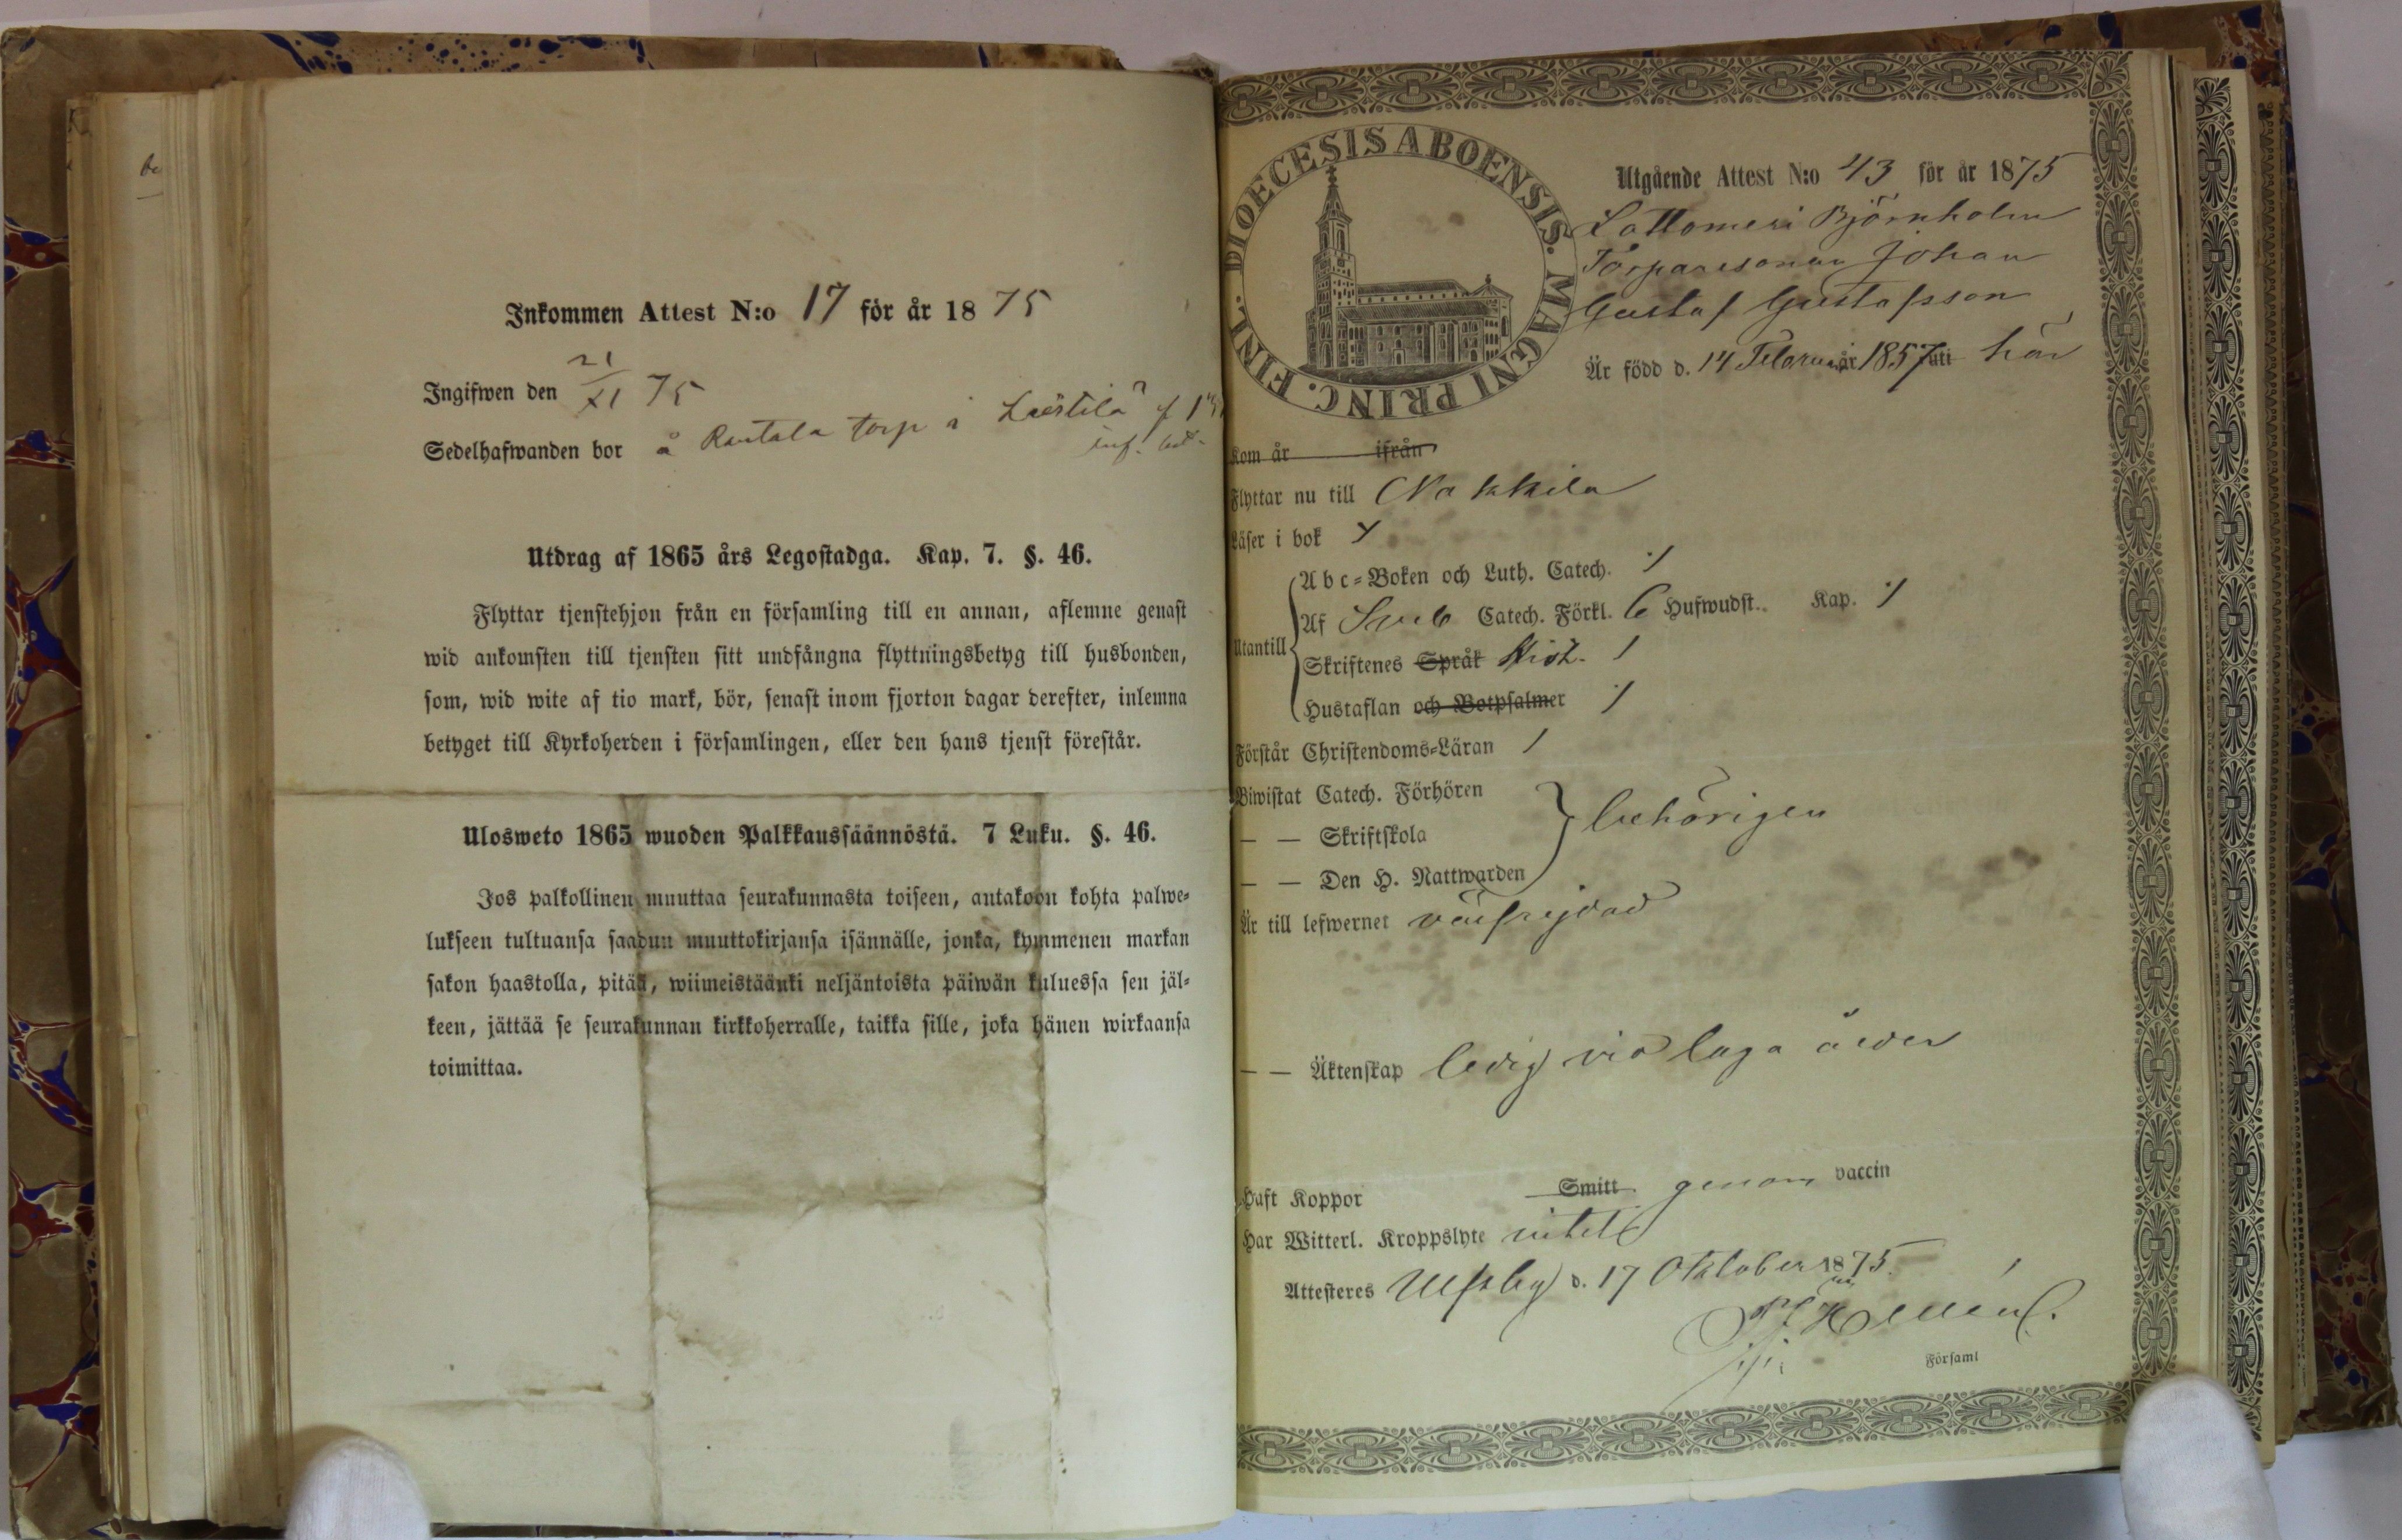 Inkommen Attest N:o 17 för år 1875
Ingifwen den 21/XI 75
Sedelhafwanden bor å Rantala torp i Leistilä
Utdrag af 1865 års Legostadga. Kap. 7. §. 46.
Flyttar tjenstehjon från en församling till en annan, aflemne genast
wid ankomsten till tjensten sitt undfångna flyttningsbetyg till husbonden,
som, wid wite af tio mark, bör, senast inom fjorton dagar derefter, inlemna
betyget till Kyrkoherden i församlingen, eller den hans tjenst förestår.
Ulosweto 1865 wuoden Palkkaussäännöstä. 7 Luku. §. 46.
Jos palkollinen muuttaa seurakunnasta toiseen, antakoon kohta palwe-
lukseen tultuansa saadun muuttokirjansa isännälle, jonka, kymmenen markan
sakon haastolla, pitää, wiimeistäänki neljäntoista päiwän kuluessa sen jäl-
keen, jättää se seurakunnan kirkkoherralle, taikka sille, joka hänen wirkaansa
toimittaa.
DIOECESIS ABOENSIS. MAGNI PRINC. FINL.
Utgående Attest N:o 43 för år 1875
Lattomeri Björnholm
Torparesonen Johan
Gustaf Gustafsson
Är född d. 14 Februari år 1857 uti här
Kom år ifrån
Flyttar nu till Nakkila
Läser i bok
Utantill
Abc-Boken och Luth. Catech.
Af Sveb Catech. Förkl. 6 Hufwudst. Kap.
Skriftenes Språk Hist.
Hustaflan och Botpsalmer
Förstår Christendoms-Läran
Biwistat Catech. Förhören
— — Skriftskola
behörigen
— — Den H. Nattwarden
Är till lefwernet välfrejdad
— — Äktenskap ledig vid laga ålder
Haft Koppor Smitt genom vaccin
Har Witterl. Kroppslyte intet
Attesteres Ulfsby d. 17 Oktober 1875.
Församl